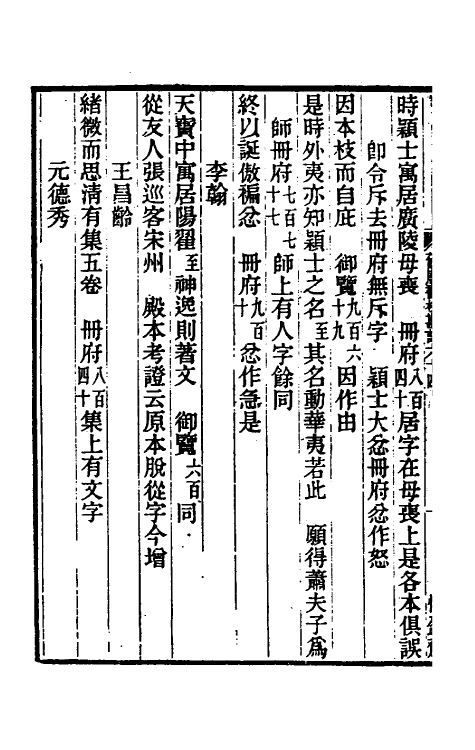 時穎士寓居廣陵母喪　冊府八百四十居字在母喪上是各本俱誤
卽令斥去冊府無斥字　穎士大忿冊府忿作怒
因本枝而自庇　御覽九百六十九因作由
是時外夷亦知穎士之名至其名動華夷若此　願得蕭夫子爲
師冊府七百七十七師上有人字餘同
終以誕傲褊忿　冊府九百十忿作急是
李翰
天寶中寓居陽翟至神逸則著文　御覽六百同
從友人張巡客宋州　殿本考證云原本脫從字今增
王昌齡
緒微而思清有集五卷　冊府八百四十集上有文字
元德秀